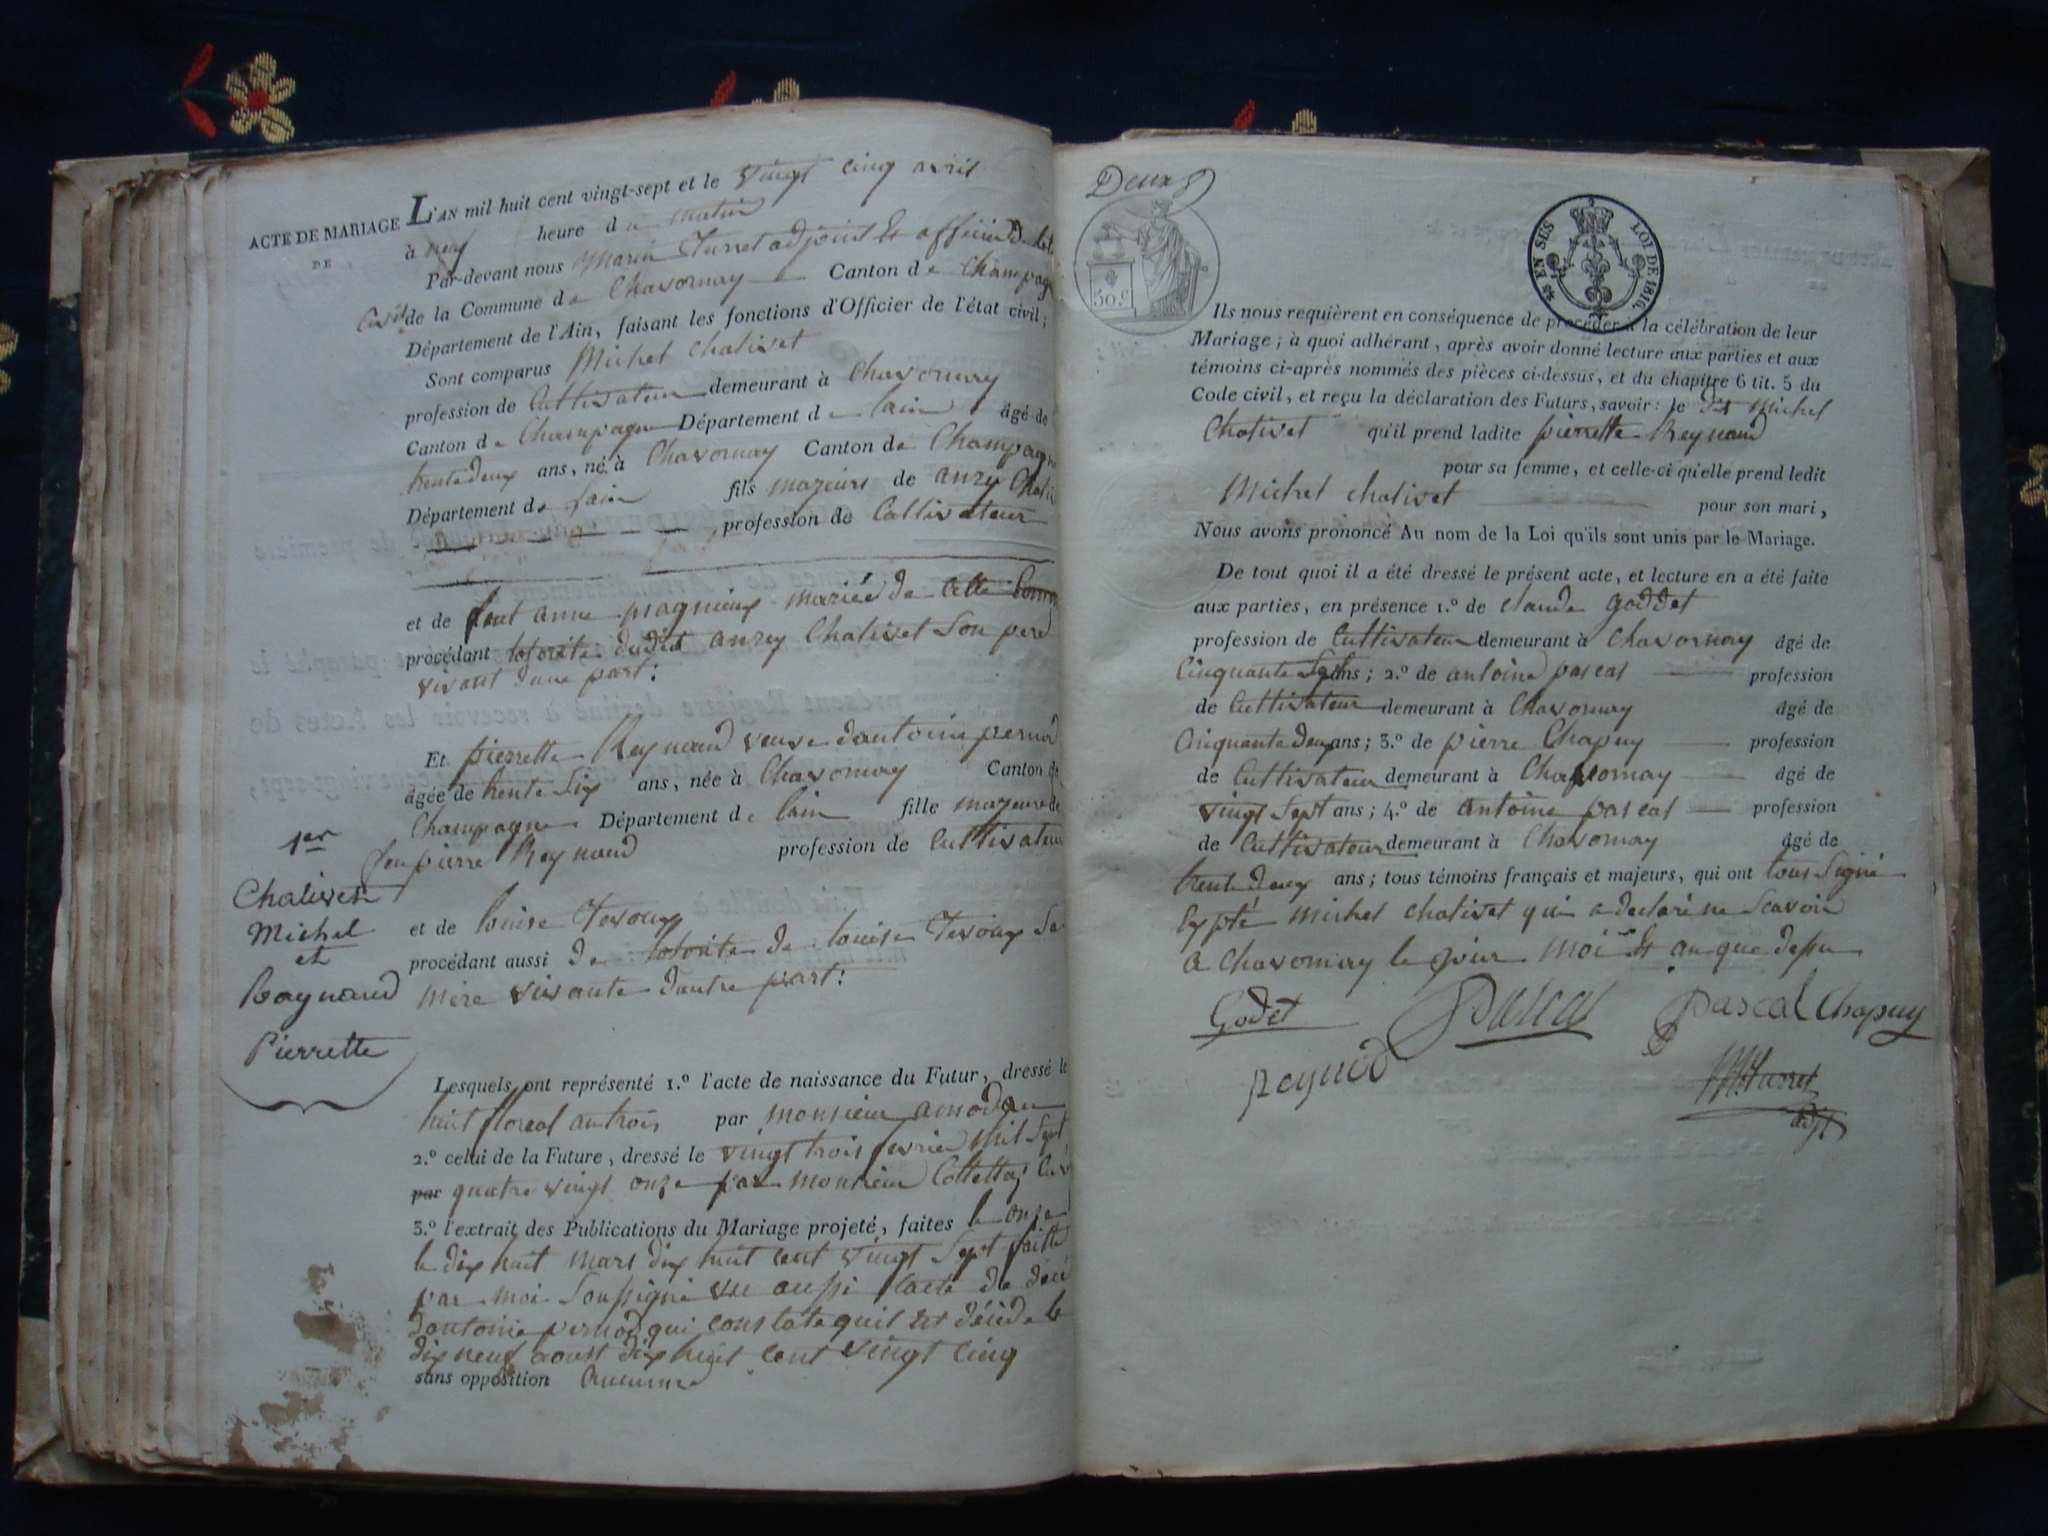 ACTE DE MARIAGE
DE
L'AN mil huit cent vingt-sept et le vingt cinq avril
à neuf heure du matin
Par-devant nous marin Turret adjoint & officier de letat
Civil de la Commune de Chavornay Canton de Champagne
Département de l'Ain, faisant les fonctions d'Officier de l'état civil;
Sont comparus Michel Chalivet
profession de Cultivateur demeurant à Chavornay
Canton de Champagne Département de lain âgé de
trente deux ans, né à Chavornay Canton de Champagne
Département de lain fils majeurs de anzey Chali
profession de Cultivateur
et de feut anne pragnieux mariée de cette Comm
procédant dudit anzey Chalivet Son pere
vivant dune part:
Et pierrette Reynaud veuve dantoine pernod
âgée de trente Six ans, née à Chavornay Canton de
Champagne Département de lain fille majeure de
feu pierre Reynaud profession de Cultivateur
et de louise Tevoux
procédant aussi de de louise Tevoux Sa
mère vivante dautre part:
1er
Chalivet
Michel
et
Raynaud
Pierrette
Lesquels ont représenté 1.º l'acte de naissance du Futur, dressé le
huit floreal an trois par monsieur amodru
2.º celui de la Future, dressé le vingt trois fevrier Mil Sept
par quatre vingt onze par monsieur Cottettaz Curé
3.º l'extrait des Publications du Mariage projeté, faites le onze
le dix huit mars dix huit cent vingt Sept faitte
par moi Soussigné vu aussi lacte de décé
dantoine pernod qui constate quil est décédé le
dix neuf aoust dix huit cent vingt cinq
sans opposition Aucunne
Deux
50.c
EN SUS
LOI DE 1816.
Ils nous requièrent en conséquence de procéder à la célébration de leur
Mariage; à quoi adhérant, après avoir donné lecture aux parties et aux
témoins ci-après nommés des pièces ci-dessus, et du chapitre 6 tit. 5 du
Code civil, et reçu la déclaration des Futurs, savoir: le dit Michel
Chalivet qu'il prend ladite pierrette Reynaud
pour sa femme, et celle-ci qu'elle prend ledit
Michel chalivet pour son mari,
Nous avons prononcé Au nom de la Loi qu'ils sont unis par le Mariage.
De tout quoi il a été dressé le présent acte, et lecture en a été faite
aux parties, en présence 1.º de claude goddet
profession de Cultivateur demeurant à Chavornay âgé de
Cinquante Sept ans; 2.º de antoine pascal profession
de Cultivateur demeurant à Chavornay âgé de
Cinquante deux ans; 3.º de pierre Chapuy profession
de Cultivateur demeurant à Chavornay âgé de
vingt Sept ans; 4.º de antoine pascal profession
de Cultivateur demeurant à Chavornay âgé de
trente deux ans; tous témoins français et majeurs, qui ont tous Signé
Exypté michel chalivet qui a declaré ne Scavoir
a chavornay le jour mois & an que dessu
Godet Pascal Pascal Chapuy
reynod Turret
adjt